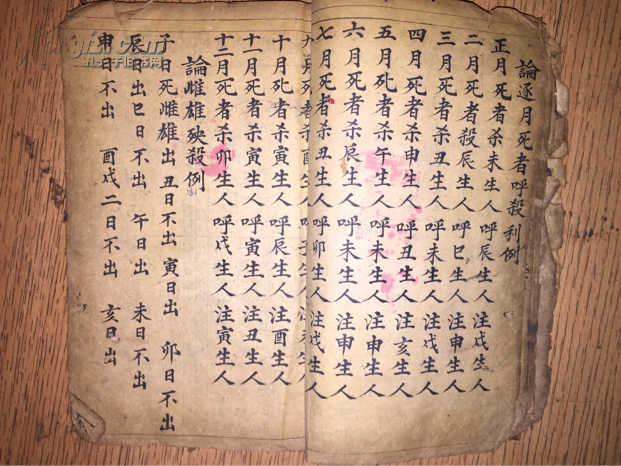 論逐月死者呼殺利例
正月死者杀未生人 呼辰生人 注戌生人
二月死者殺辰生人 呼巳生人 注申生人
三月死者杀丑生人 呼未生人 注戌生人
四月死者杀申生人 呼丑生人 注亥生人
五月死者杀午生人 呼未生人 注申生人
六月死者杀辰生人 呼未生人 注申生人
七月死者杀丑生人 呼卯生人 注戌生人
九月死者杀酉生人 呼子生人 注未生人
十月死者杀寅生人 呼辰生人 注酉生人
十一月死者杀寅生人 呼寅生人 注丑生人
十二月死者杀卯生人 呼戌生人 注寅生人
論雌雄殃殺例
子日死雌雄出 丑日不出 寅日出 卯日不出
辰日出巳日不出 午日出 未日不出
申日不出 酉戌二日不出 亥日出